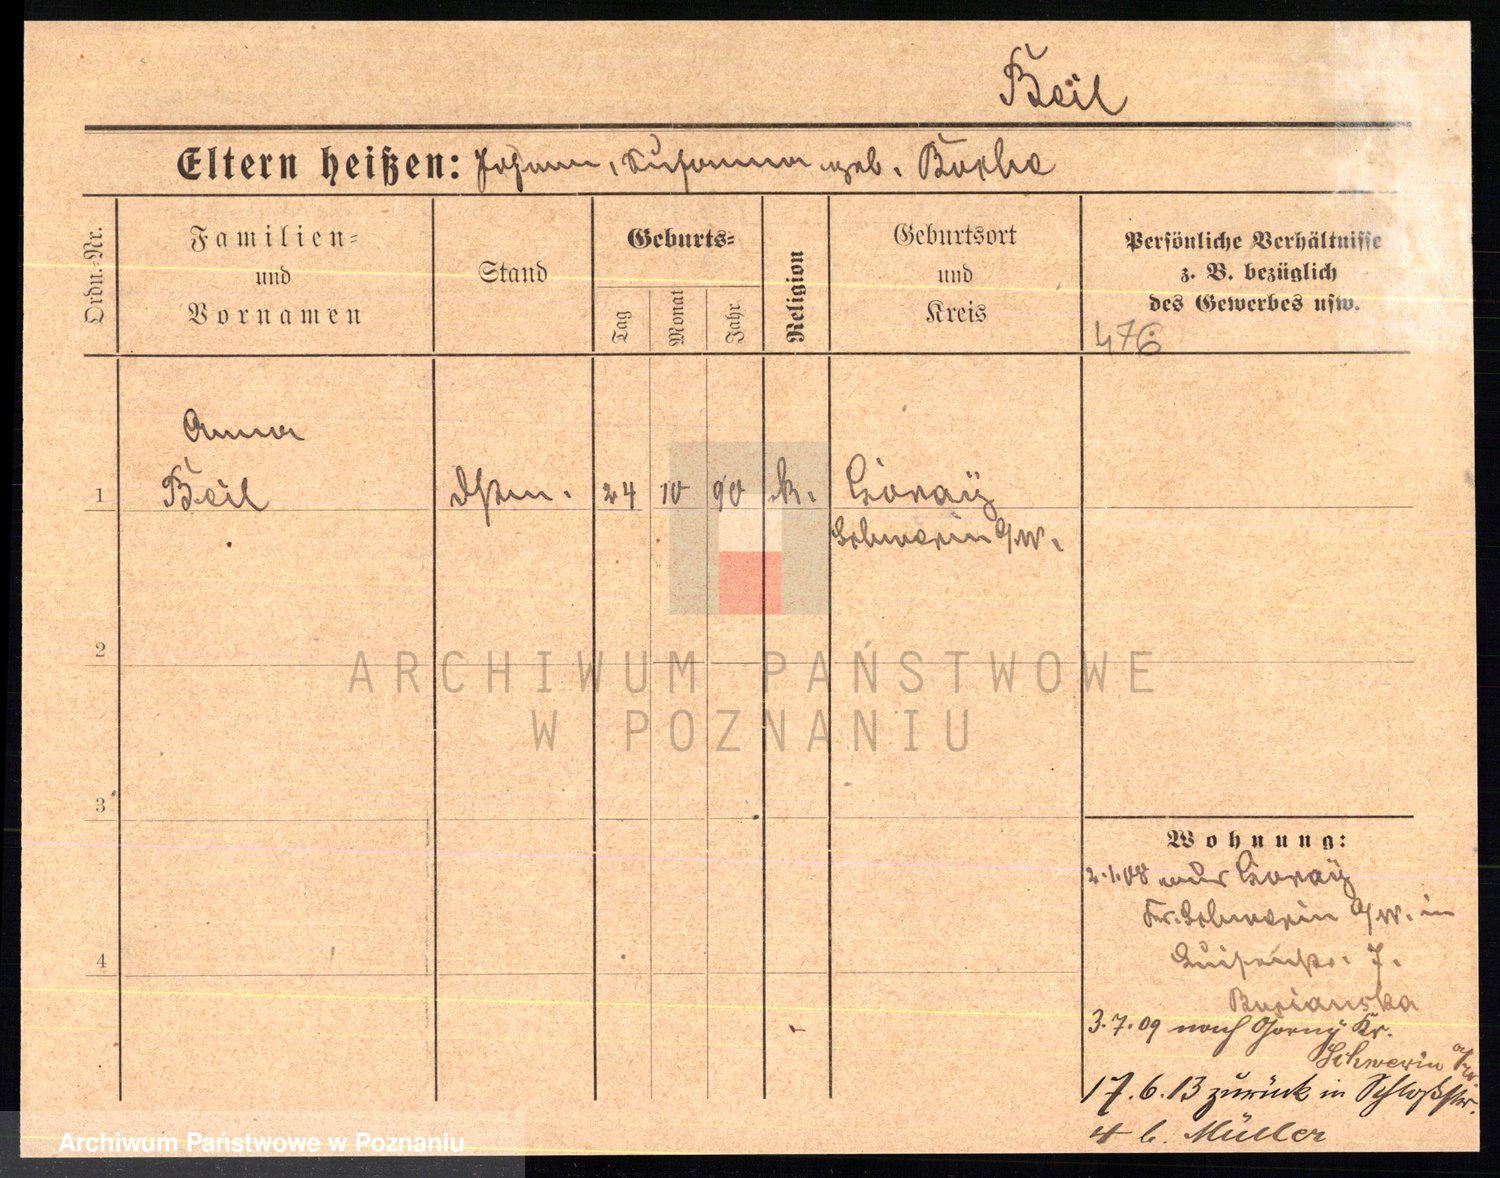 Beil
Eltern heißen: Johann, Susanna geb.
Ordn.-Nr.
Familien-
und
Vornamen
Stand
Geburts-
Tag
Monat
Jahr
Religion
Geburtsort
und
Kreis
Persönliche Verhältnisse
z. B. bezüglich
des Gewerbes usw.
476
Anna
1 Beil 24 10 90 k. Goray
Schwerin a/W.
2
3
4
Wohnung:
2.1.08 aus Goray
Kr. Schwerin a/W. in
Luisenstr. 7.
3.7.09 nach Goray Kr.
Schwerin a/W.
17.6.13 zurück in Schloßstr.
4 b. Müller
ARCHIWUM PAŃSTWOWE
W POZNANIU
Archiwum Państwowe w Poznaniu